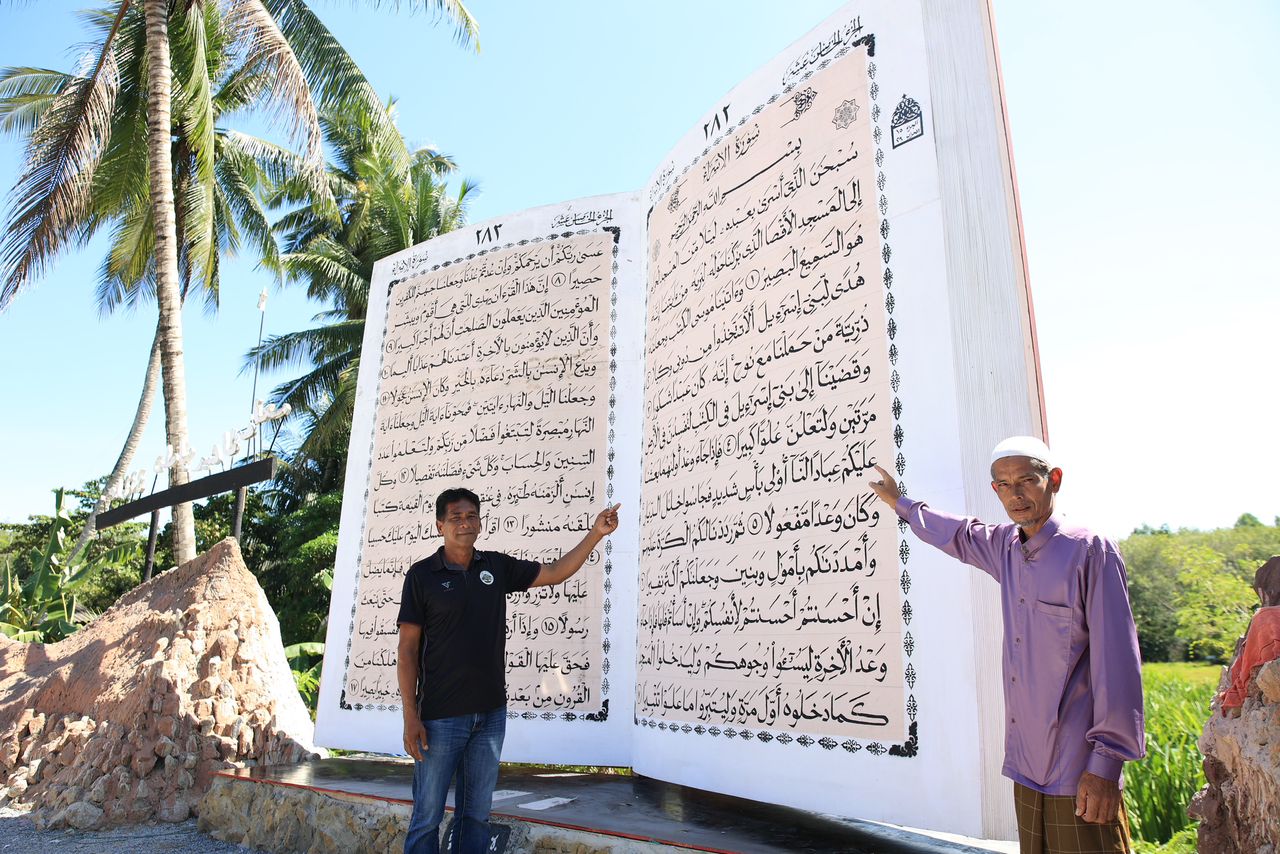 الجزء الخامس عشر
٢٨٢
سورة الإسراء
سورة الإسراء
بسم الله الرحمن الرحيم
سُبْحَٰنَ الَّذِي أَسْرَىٰ بِعَبْدِهِ لَيْلًا مِّنَ الْمَسْجِدِ
إِلَى الْمَسْجِدِ الْأَقْصَا الَّذِي بَٰرَكْنَا حَوْلَهُ لِنُرِيَهُ مِنْ ءَايَٰتِنَا
هُوَ السَّمِيعُ الْبَصِيرُ ١ وَءَاتَيْنَا مُوسَى الْكِتَٰبَ وَجَعَلْنَٰهُ
هُدًى لِّبَنِي إِسْرَٰءِيلَ أَلَّا تَتَّخِذُوا مِن دُونِي وَكِيلًا
ذُرِّيَّةَ مَنْ حَمَلْنَا مَعَ نُوحٍ إِنَّهُ كَانَ عَبْدًا شَكُورًا
وَقَضَيْنَا إِلَىٰ بَنِي إِسْرَٰءِيلَ فِي الْكِتَٰبِ لَتُفْسِدُنَّ فِي الْأَرْضِ
مَرَّتَيْنِ وَلَتَعْلُنَّ عُلُوًّا كَبِيرًا ٤ فَإِذَا جَاءَ وَعْدُ أُولَىٰهُمَا بَعَثْنَا
عَلَيْكُمْ عِبَادًا لَّنَا أُولِي بَأْسٍ شَدِيدٍ فَجَاسُوا خِلَٰلَ الدِّيَارِ
وَكَانَ وَعْدًا مَّفْعُولًا ٥ ثُمَّ رَدَدْنَا لَكُمُ الْكَرَّةَ عَلَيْهِمْ
وَأَمْدَدْنَٰكُم بِأَمْوَٰلٍ وَبَنِينَ وَجَعَلْنَٰكُمْ أَكْثَرَ نَفِيرًا
إِنْ أَحْسَنتُمْ أَحْسَنتُمْ لِأَنفُسِكُمْ وَإِنْ أَسَأْتُمْ فَلَهَا فَإِذَا جَاءَ
وَعْدُ الْأَخِرَةِ لِيَسُـُٔوا وُجُوهَكُمْ وَلِيَدْخُلُوا الْمَسْجِدَ
كَمَا دَخَلُوهُ أَوَّلَ مَرَّةٍ وَلِيُتَبِّرُوا مَا عَلَوْا تَتْبِيرًا
الجزء الخامس عشر
٢٨٣
سورة الإسراء
عَسَىٰ رَبُّكُمْ أَن يَرْحَمَكُمْ وَإِنْ عُدتُّمْ عُدْنَا وَجَعَلْنَا جَهَنَّمَ لِلْكَٰفِرِينَ
حَصِيرًا ٨ إِنَّ هَٰذَا الْقُرْءَانَ يَهْدِي لِلَّتِي هِيَ أَقْوَمُ وَيُبَشِّرُ
الْمُؤْمِنِينَ الَّذِينَ يَعْمَلُونَ الصَّٰلِحَٰتِ أَنَّ لَهُمْ أَجْرًا كَبِيرًا ٩
وَأَنَّ الَّذِينَ لَا يُؤْمِنُونَ بِالْأَخِرَةِ أَعْتَدْنَا لَهُمْ عَذَابًا أَلِيمًا ١٠
وَيَدْعُ الْإِنسَٰنُ بِالشَّرِّ دُعَاءَهُ بِالْخَيْرِ وَكَانَ الْإِنسَٰنُ عَجُولًا ١١
وَجَعَلْنَا الَّيْلَ وَالنَّهَارَ ءَايَتَيْنِ فَمَحَوْنَا ءَايَةَ الَّيْلِ وَجَعَلْنَا ءَايَةَ
النَّهَارِ مُبْصِرَةً لِّتَبْتَغُوا فَضْلًا مِّن رَّبِّكُمْ وَلِتَعْلَمُوا عَدَدَ
السِّنِينَ وَالْحِسَابَ وَكُلَّ شَيْءٍ فَصَّلْنَٰهُ تَفْصِيلًا ١٢ وَكُلَّ
إِنسَٰنٍ أَلْزَمْنَٰهُ طَٰئِرَهُ فِي عُنُقِهِ يَوْمَ الْقِيَٰمَةِ كِتَٰبًا
يَلْقَىٰهُ مَنشُورًا ١٣ اقْرَأْ الْيَوْمَ عَلَيْكَ حَسِيبًا
عَلَيْهَا وَلَا تَزِرُ وَازِرَةٌ حَتَّىٰ نَبْعَثَ
رَسُولًا ١٥ وَإِذَا أَرَدْنَا فَفَسَقُوا فِيهَا
فَحَقَّ عَلَيْهَا الْقَوْلُ
الْقُرُونِ مِن بَعْدِ